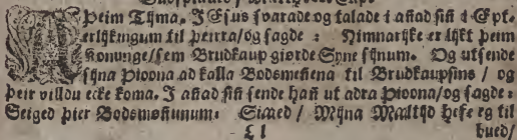 A Þeim Tijma. JEsus svarade og talade i añad siñ i Ept-
erlijkingum til þeirra/ og sagde : Himnarijke er lijkt þeim
Konunge/ sem Brudkaup giørde Syne sijnum. Og utsende
sijna Þiona ad kalla Bodsmeñena til Brudkaupsins / og
þeir villdu ecke koma. J añad siñ sende hañ ut adra Þiona/ og sagde :
Seiged þier Bodsmøñunum: Siaed / Mijna Maaltijd hefe eg til
bued/